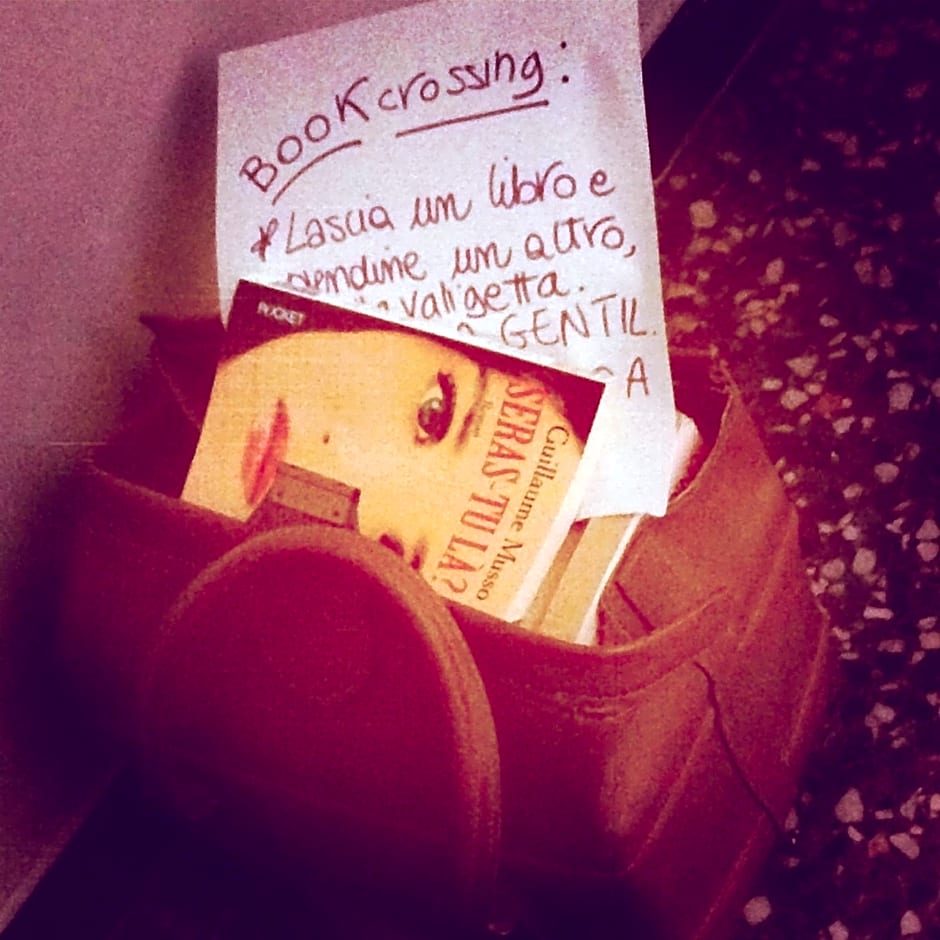 BOOKcrossing:
* Lascia un libro e
prendine un altro,
valigetta.
GENTIL.
A
POCKET
Guillaume Musso
SERAS-TU LÀ?